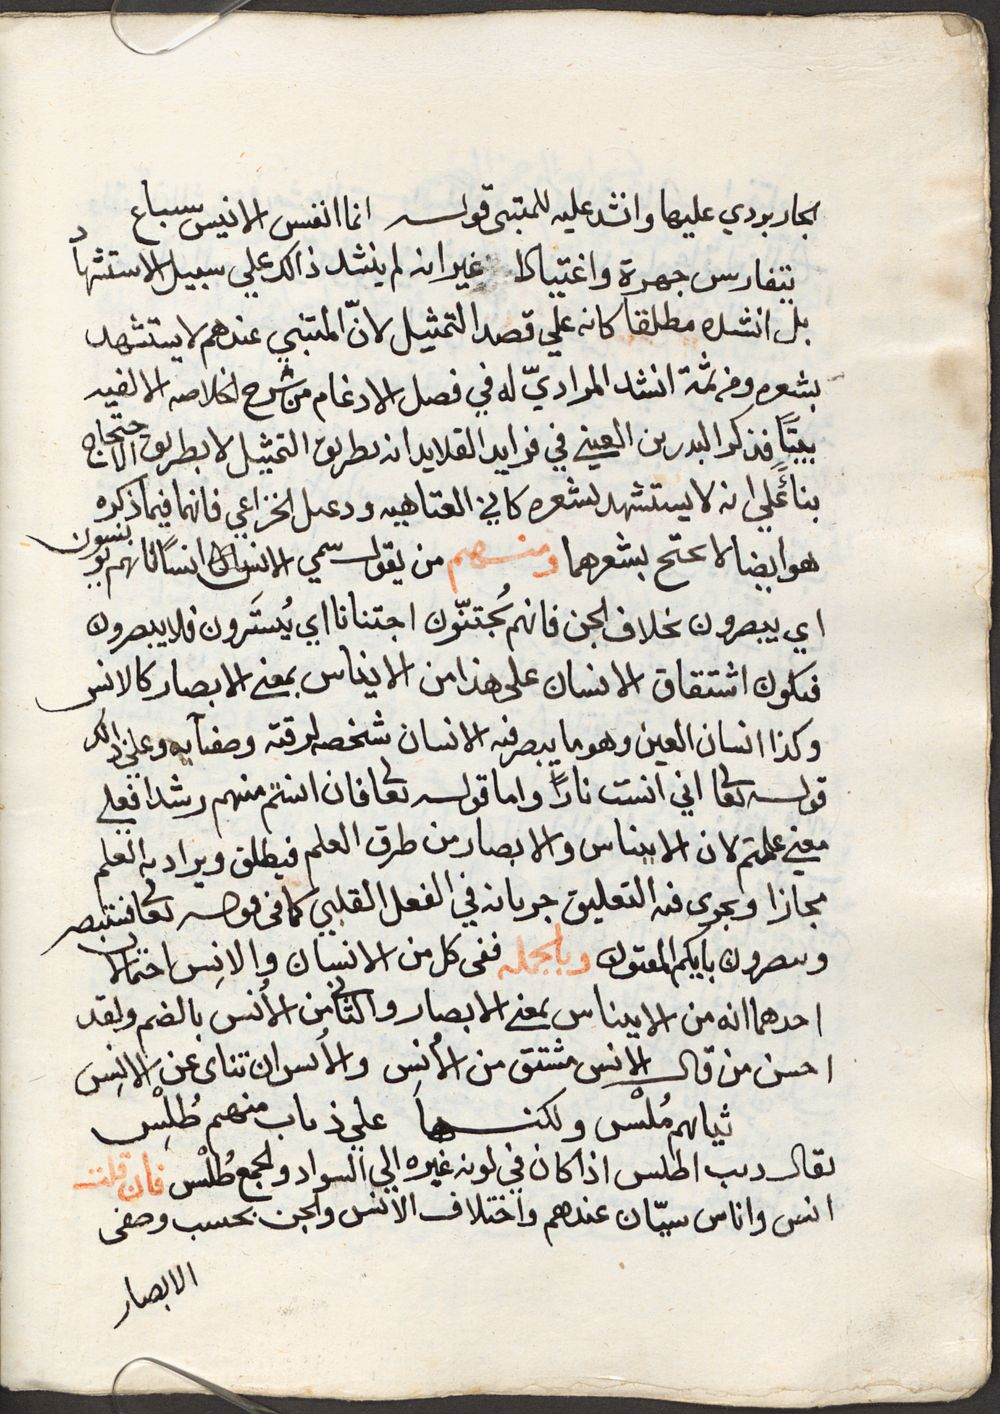 الجاربردي عليها وانشد عليه للمتنبي قولـه انما انفس الانيس سباع
يتفارس جهرة واغتيالا غير انه لم ينشد ذالك علي سبيل الاستشهاد
بل انشده مطلقا كانه علي قصد التمثيل لانّ المتنبي عندهم لا يستشهد
بشعره ومن ثمة انشد المراديّ له في فصل الادغام من شرح الخلاصه الالفيه
بيتًا فذكر البدر بن العيني في فرايد القلايد انه بطريق التمثيل لا بطريق الاحتجاج
بناءً علي انه لا يستشهد بشعره كابي العتاهيه ودعبل الخزاعي فانهما فيما ذكره
هو ايضا لا يحتج بشعرهما ومنـهم من يقول سمي الانس انسا لانهم يونسون
اي يبصرون بخلاف الجن فانهم مُجتنّون اجتنانا اي يُستَرون فلا يبصرون
فيكون اشتقاق الانسان على هذا من الايناس بمعني الابصار كالانس
وكذا انسان العين وهو ما يبصر فيه الانسان شخصه لرقته وصفآيه وعلى ذالك
قولـه تعالى اني انست نارًا واما قولـه تعالى فان انستم منهم رشدا فعلي
معني علمتم لان الايناس والابصار من طرق العلم فيطلق ويراد به العلم
مجازا ويجرى فيه التعليق جريانه في الفعل القلبي كما في قولـه تعالى فستبصر
ويبصرون بايكم المفتون وبالجمله ففى كل من الانسان والانس احتمالان
احدهما انه من الايناس بمعني الابصار والثاني من الأُنس بالضم ولقد
احسن من قالـ الانس مشتق من الأُنِس والأنس ان تناى عن الانِس
ثيابهم مُلْس ولكنـها علي ذياب منهم طُلِس
يقالـ ذيب اطلس اذا كان في لونه غبره الي السواد والجمع طُلْس فان قلت
انس واناس سيّان عندهم واختلاف الانس والجن بحسب وصفى
الابصار